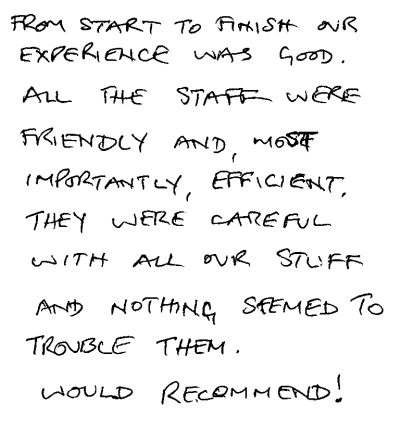 FROM START TO FINISH OUR
EXPERIENCE WAS GOOD.
ALL THE STAFF WERE
FRIENDLY AND, MOST
IMPORTANTLY, EFFICIENT.
THEY WERE CAREFUL
WITH ALL OUR STUFF
AND NOTHING SEEMED TO
TROUBLE THEM.
WOULD RECOMMEND!